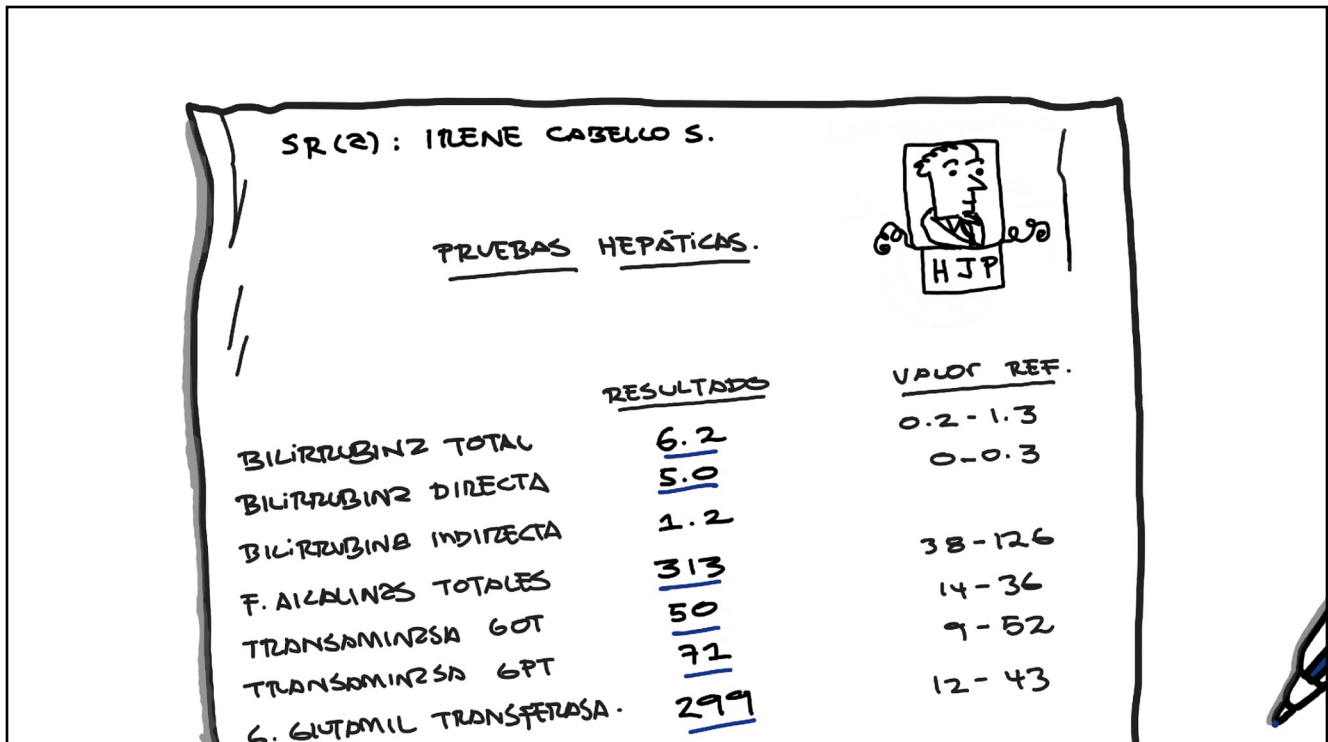 SR(a): IRENE CABELLO S.
HJP
PRUEBAS HEPÁTICAS.
RESULTADO VALOR REF.
BILIRRUBINA TOTAL 6.2 0.2-1.3
BILIRRUBINA DIRECTA 5.0 0-0.3
BILIRRUBINA INDIRECTA 1.2
F. ALCALINAS TOTALES 313 38-126
TRANSAMINASA GOT 50 14-36
TRANSAMINASA GPT 71 9-52
G. GLUTAMIL TRANSFERASA. 299 12-43